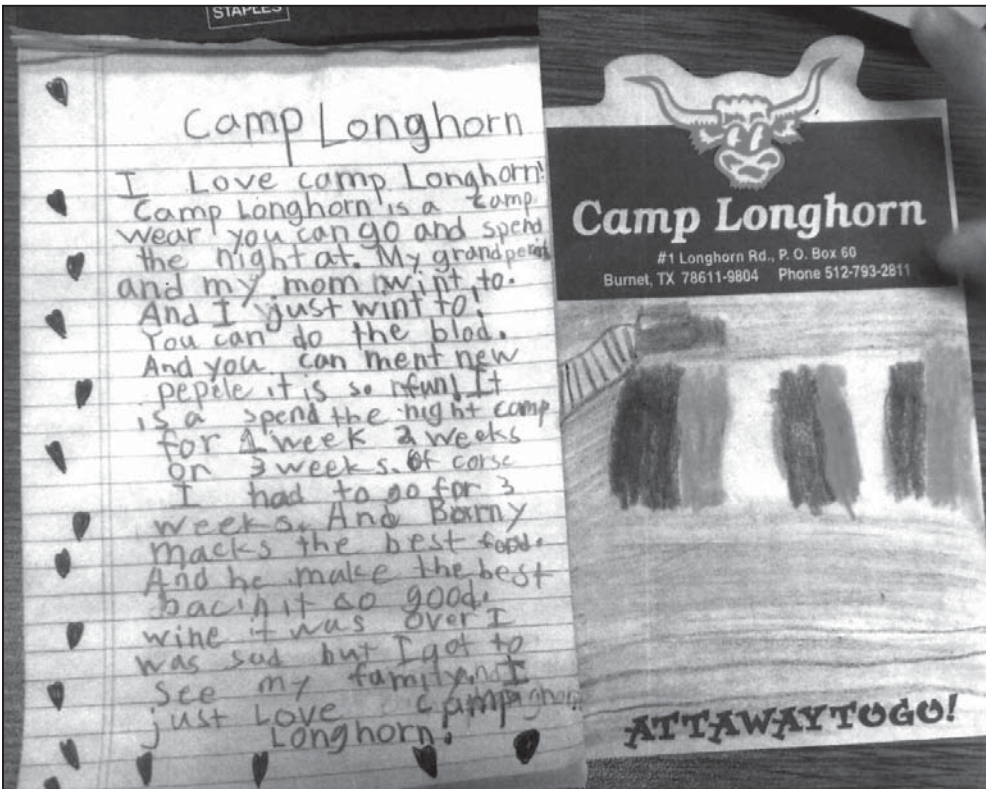 STAPLES
Camp Longhorn
I Love camp Longhorn!
Camp Longhorn is a camp
wear you can go and spend
the night at. My grandperint
and my mom wint to.
And I just wint to!
You can do the blod.
And you can ment new
pepele it is so nfun! It
is a spend the night camp
for 1 week 2 weeks
on 3 weeks. Of corse
I had to go for 3
weeks. And Barny
macks the best food.
And he make the best
bacin it so good.
wine it was over I
was sad but I got to
see my family. I
just Love camp
Longhorn!
Camp Longhorn
#1 Longhorn Rd., P. O. Box 60
Burnet, TX 78611-9804 Phone 512-793-2811
ATTAWAYTOGO!